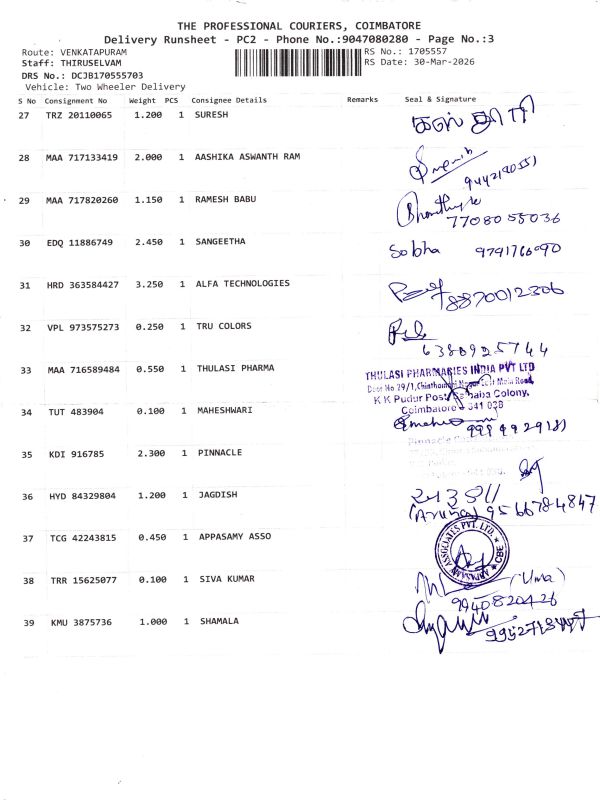 THE PROFESSIONAL COURIERS, COIMBATORE
Delivery Runsheet - PC2 - Phone No.:9047080280 - Page No.:3
Route: VENKATAPURAM
RS No.: 1705557
Staff: THIRUSELVAM
RS Date: 30-Mar-2026
DRS No.: DCJB170555703
Vehicle: Two Wheeler Delivery
S No Consignment No Weight PCS Consignee Details Remarks Seal & Signature
27 TRZ 20110065 1.200 1 SURESH
28 MAA 717133419 2.000 1 AASHIKA ASWANTH RAM
29 MAA 717820260 1.150 1 RAMESH BABU
7708055036
30 EDQ 11886749 2.450 1 SANGEETHA Sobha
31 HRD 363584427 3.250 1 ALFA TECHNOLOGIES 8870012306
32 VPL 973575273 0.250 1 TRU COLORS
6380925744
33 MAA 716589484 0.550 1 THULASI PHARMA
THULASI PHARMACIES INDIA PVT LTD
Door No 29/1, Main Road,
K K Pudur Post, Colony,
Coimbatore - 641 038
34 TUT 483904 0.100 1 MAHESHWARI
35 KDI 916785 2.300 1 PINNACLE
Pinnacle
36 HYD 84329804 1.200 1 JAGDISH
(Aruna) 9566784847
37 TCG 42243815 0.450 1 APPASAMY ASSO
ASSOCIATES PVT. LTD. CBE
38 TRR 15625077 0.100 1 SIVA KUMAR (Uma)
9940820426
39 KMU 3875736 1.000 1 SHAMALA